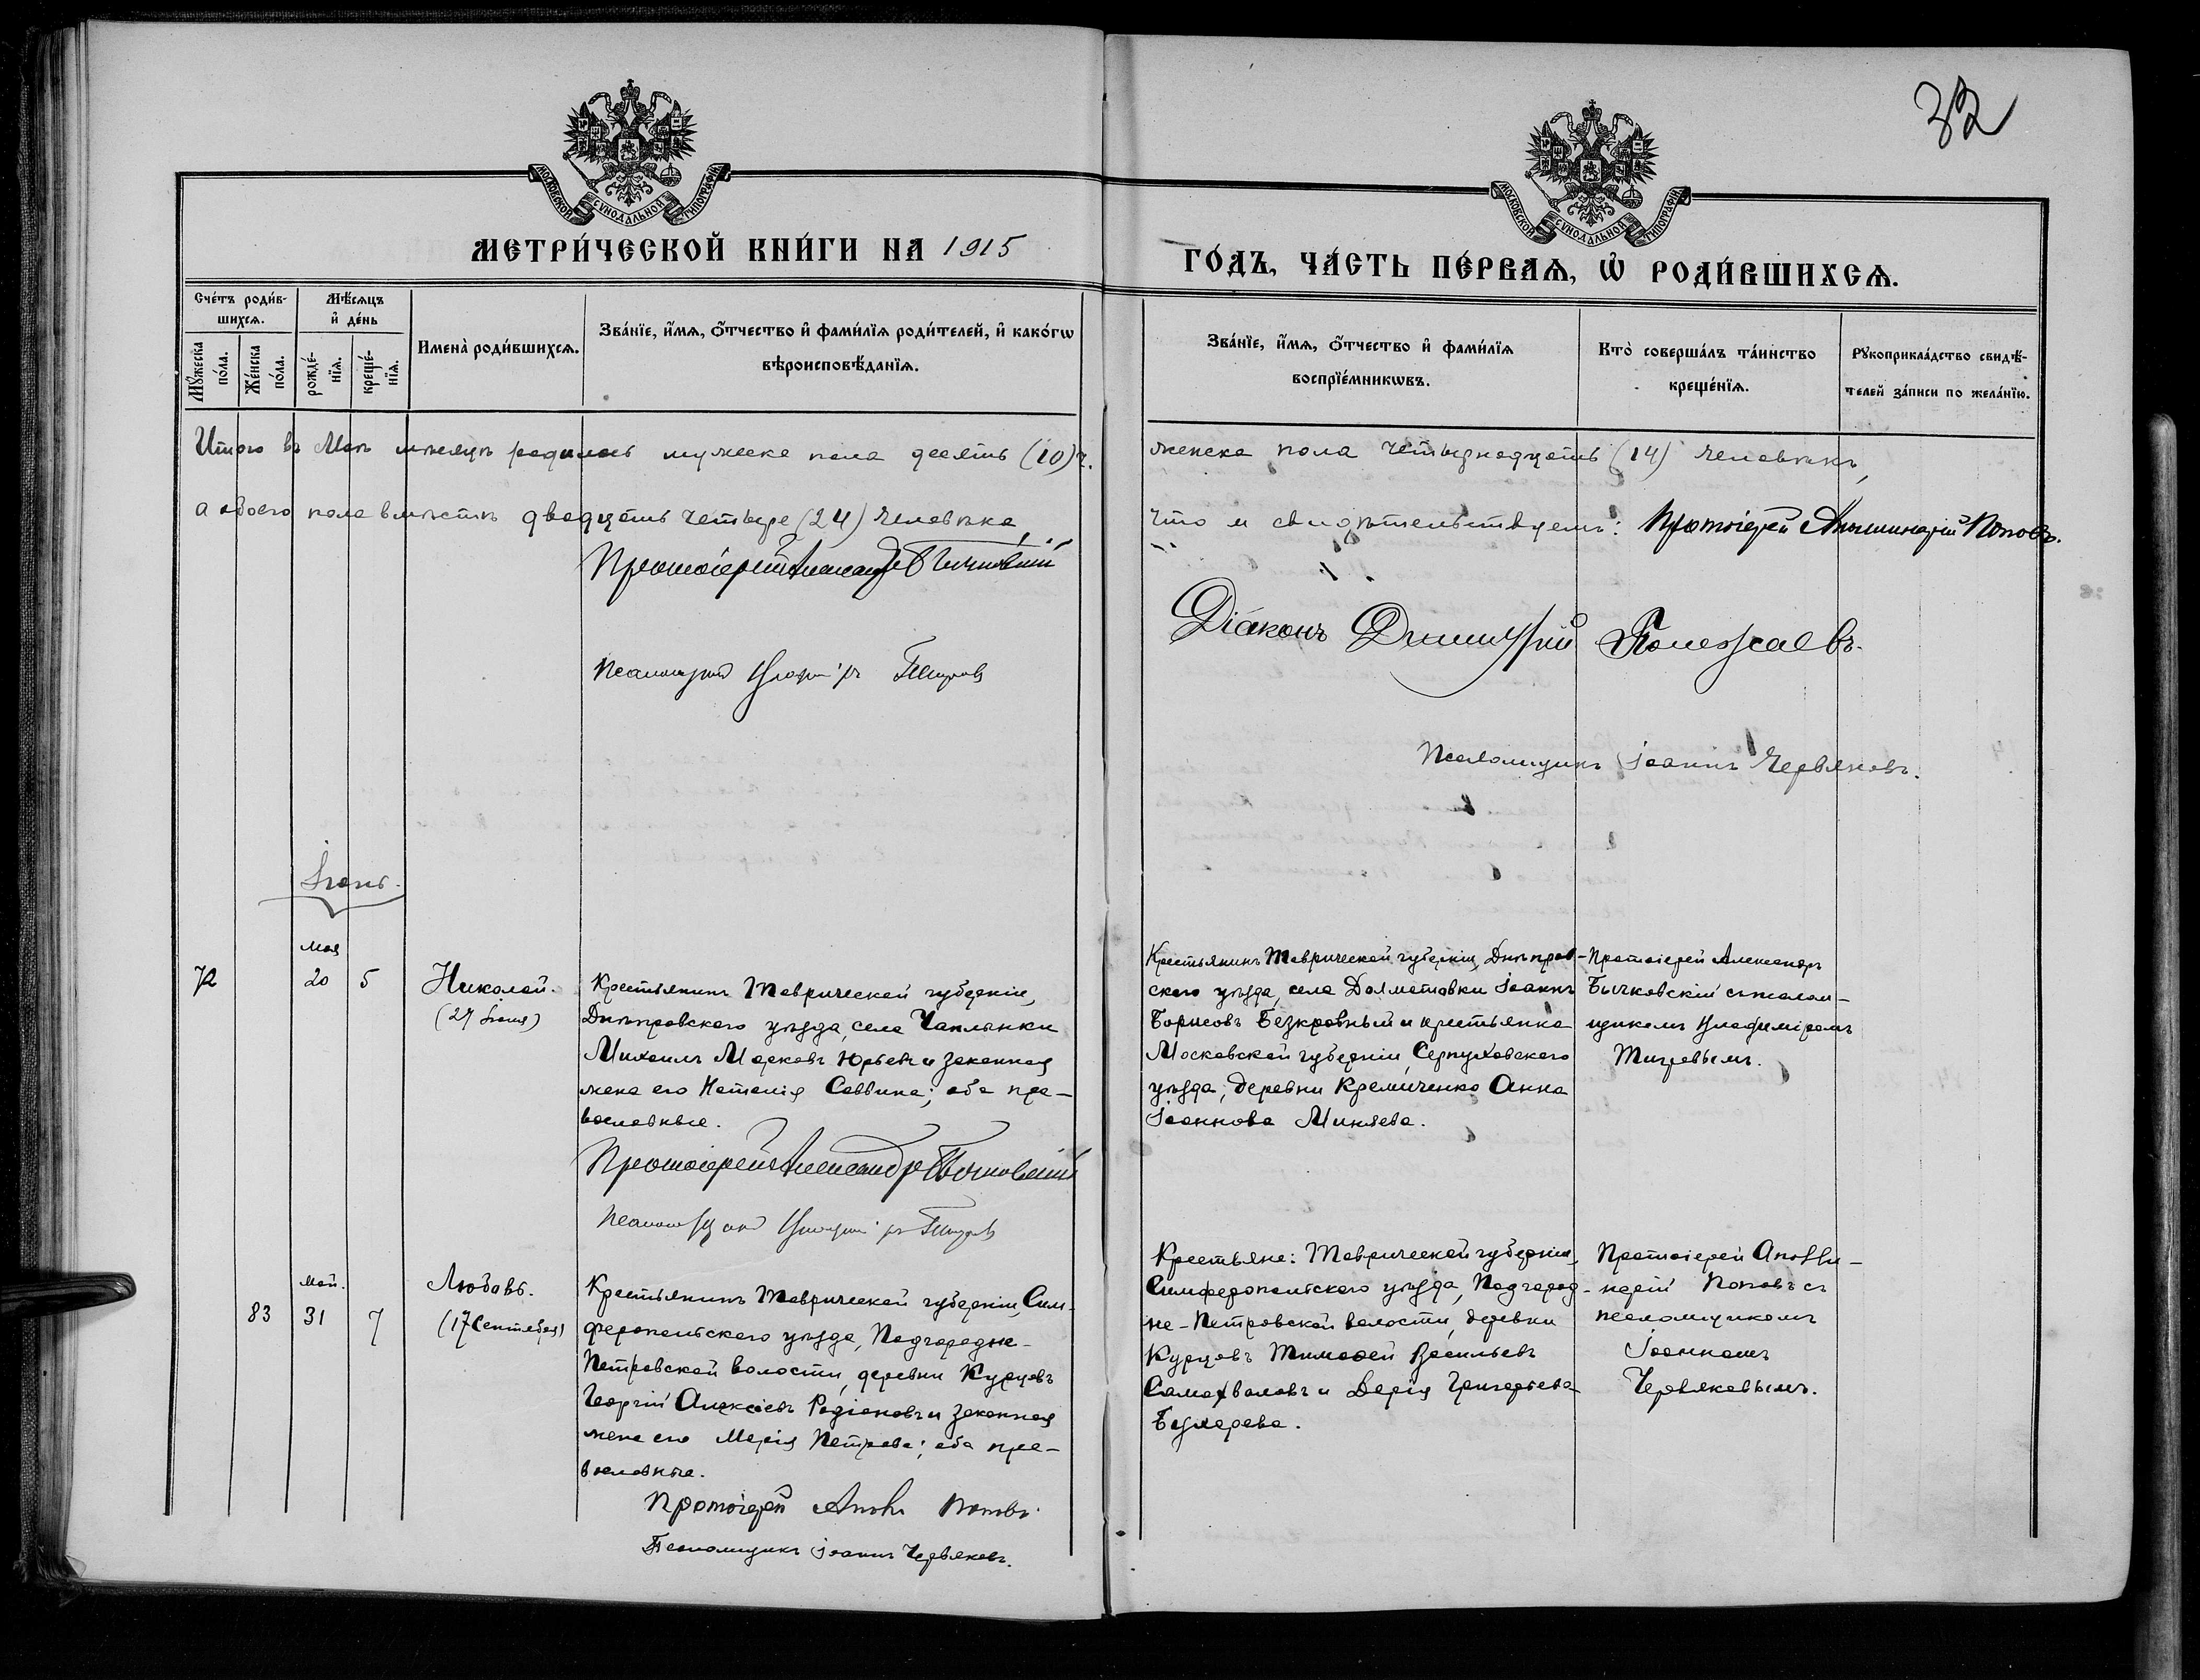 32
МОСКОВСКОЙ СУНОДАЛЬНОЙ ТИПОГРАФІИ
МОСКОВСКОЙ СУНОДАЛЬНОЙ ТИПОГРАФІИ
МЕТРИ́ЧЕСКОЙ КНИ́ГИ НА 1915
ГО́ДЪ, ЧА́СТЬ ПЕ́РВАѦ, Ѡ РОДИ́ВШИХСѦ.
Сче́тъ роди́в-
шихсѧ.
Мꙋ́жеска по́ла.
Же́нска по́ла.
Мѣ́сѧцъ
и҆ де́нь
рожде́-
нїѧ.
креще́-
нїѧ.
Имена̀ роди́вшихсѧ.
Зва́нїе, и҆́мѧ, ѻ҆́тчество и҆ фами́лїѧ роди́телей, и҆ како́гѡ
вѣроисповѣ́данїѧ.
Зва́нїе, и҆́мѧ, ѻ҆́тчество и҆ фами́лїѧ
воспрїе́мникѡвъ.
Кто̀ соверша́лъ та́инство
креще́нїѧ.
Рꙋкоприкла́дство свидѣ́-
телей за́писи по жела́нїю.
Итого въ Маѣ мѣсяцѣ родилось мужеска пола десять (10) ч.
женска пола четырнадцать (14) человѣкъ,
а обоего пола вмѣстѣ двадцать четыре (24) человѣка,
что и свидѣтельствуемъ: Протоіерей Аполлинарій Поповъ.
Протоіерей Александръ Бычковскій
Діаконъ Димитрій Полежаевъ.
Псаломщикъ Владиміръ Тигровъ
Псаломщикъ Іоаннъ Червяковъ.
Іюнь.
мая
72 20 5
Николай.
(27 Іюня)
Крестьянинъ Таврической губерніи,
Днѣпровскаго уѣзда, села Чаплынки
Михаилъ Марковъ Юрьевъ и законная
жена его Наталія Саввина; оба пра-
вославные.
Протоіерей Александръ Бычковскій
Псаломщикъ Владиміръ Тигровъ
Крестьянинъ Таврической губерніи, Днѣпров-
скаго уѣзда, села Далматовки Іоаннъ
Борисовъ Безкровный и крестьянка
Московской губерніи, Серпуховскаго
уѣзда, деревни Кремиченко Анна
Іоаннова Миняева.
Протоіерей Александръ
Бычковскій съ псалом-
щикомъ Владиміромъ
Тигровымъ.
мая.
83 31 7
Любовь.
(17 Сентября)
Крестьянинъ Таврической губерніи, Сим-
феропольскаго уѣзда, Подгородне-
Петровской волости, деревни Курцовъ
Георгій Алексіевъ Родіоновъ и законная
жена его Марія Петрова; оба пра-
вославные.
Протоіерей Апол. Поповъ
Псаломщикъ Іоаннъ Червяковъ.
Крестьяне: Таврической губерніи,
Симферопольскаго уѣзда, Подгород-
не-Петровской волости, деревни
Курцовъ Тимоѳей Васильевъ
Самохваловъ и Дарія Григорьева
Протоіерей Аполли-
нарій Поповъ съ
псаломщикомъ
Іоанномъ
Червяковымъ.